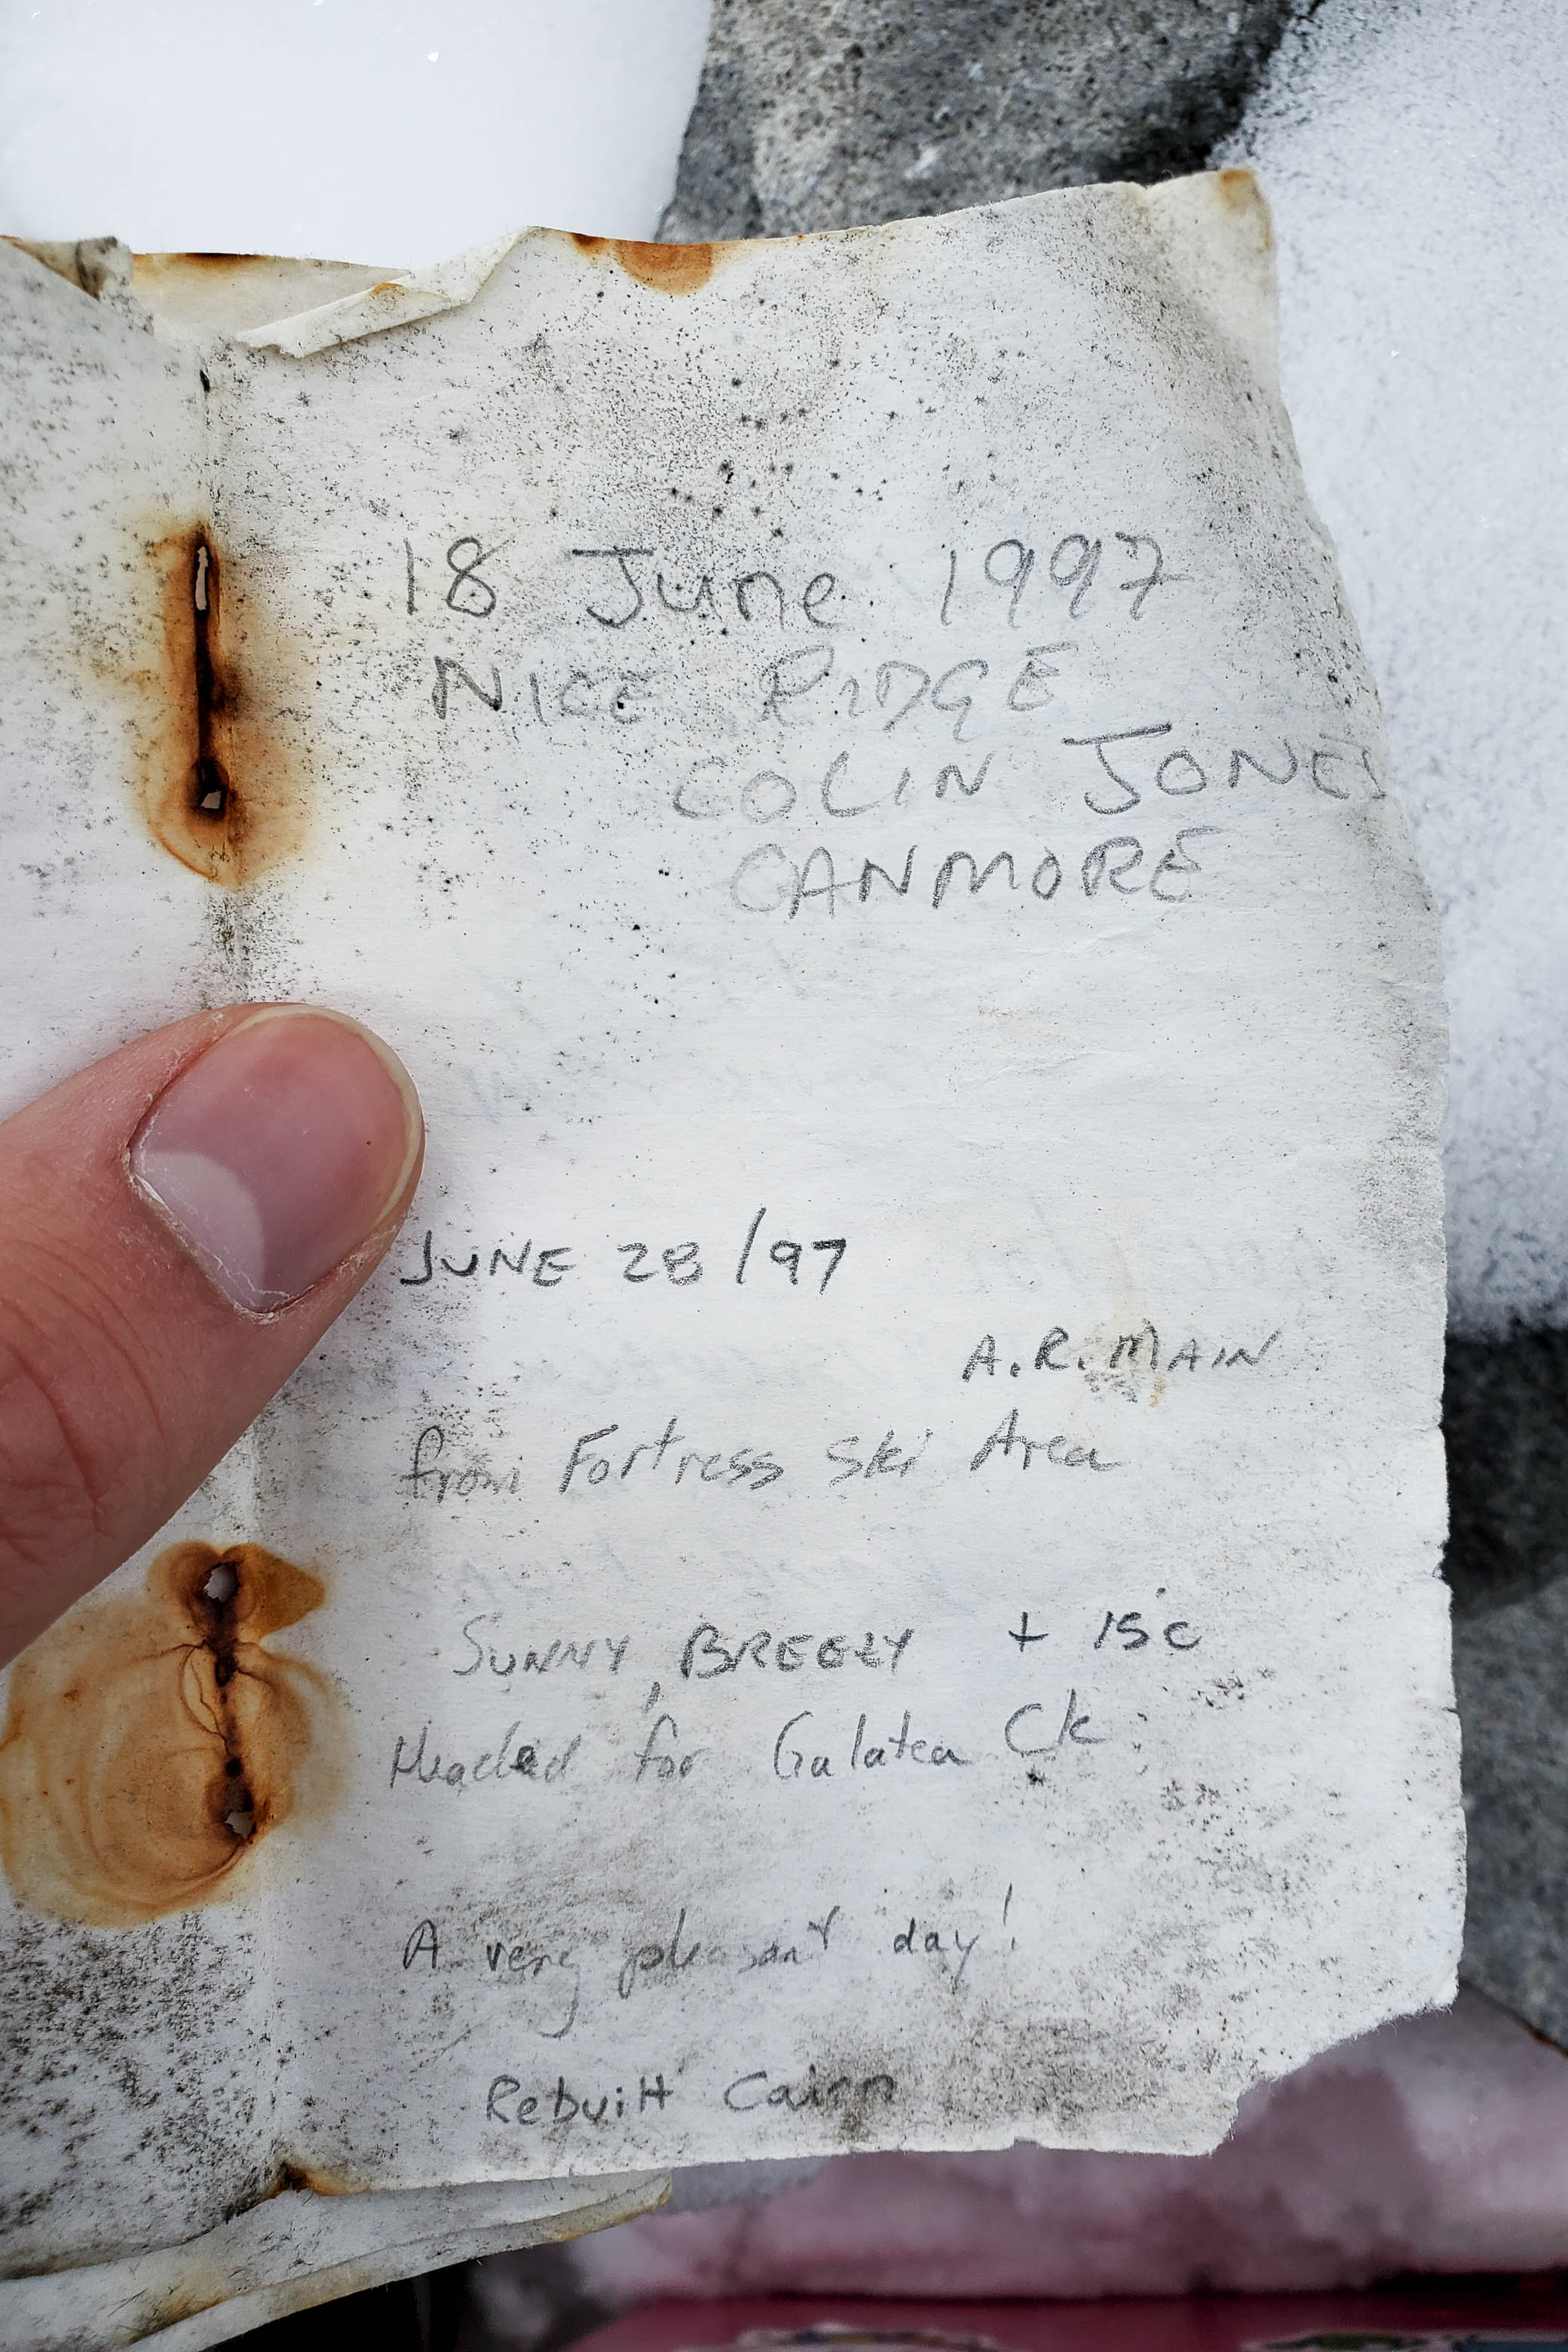 18 June 1997
NICE RIDGE
COLIN JONES
CANMORE
JUNE 28/97
A.R. MAIN
from Fortress Ski Area
SUNNY, BREEZY + 15°C
Headed for Galatea Ck
A very pleasant day!
Rebuilt Cairn